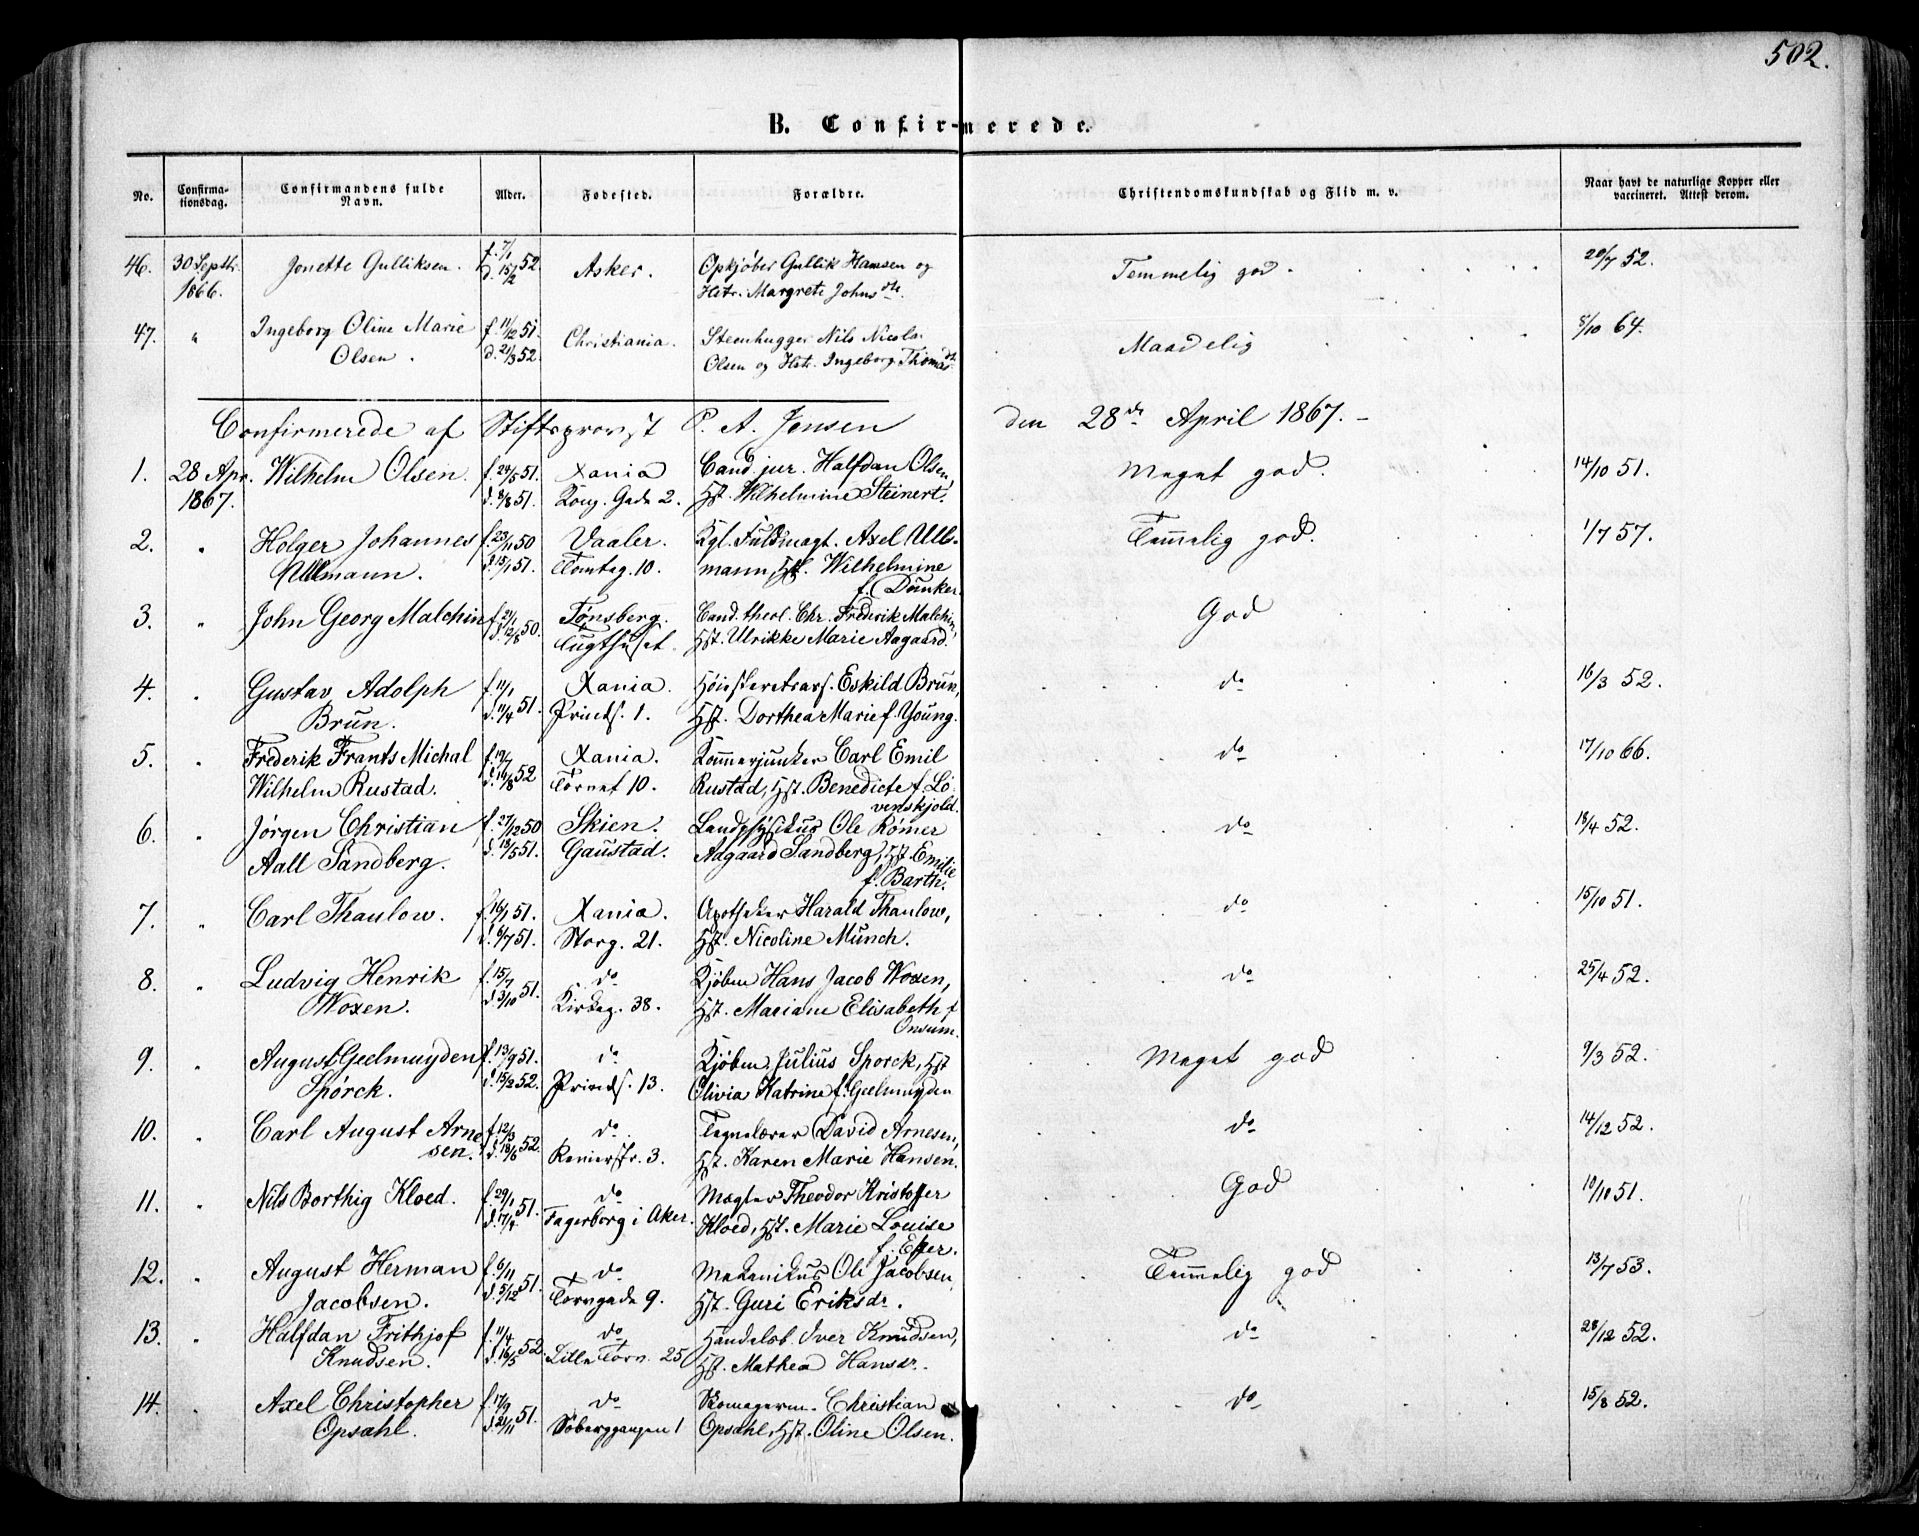 502.
B. Confirmerede.
No. Confirmationsdag. Confirmandens fulde Navn. Alder. Fødested. Forældre. Christendomskundskab og Flid m. v. Naar havt de naturlige Kopper eller vaccineret. Attest derom.
46. 30 Septbr. Jonette Gulliksen. f. 7/1 52. Asker. Opkjøber Gullik Hansen og Temmelig god. 20/7 52.
1866. d. 15/2 Hstr. Margrete Johnsdtr.
47. " Ingeborg Oline Marie f. 11/12 51. Christiania. Steenhugger Nils Nicolai Maadelig 8/10 64.
Olsen. d. 21/3 52. Olsen og Hstr. Ingeborg Thomasdt.
Confirmerede af Stiftsprovst P. A. Jensen den 28de April 1867. –
1. 28 Apr. Wilhelm Olsen. f. 24/5 51. Xania Cand. jur. Halfdan Olsen, Meget god. 14/10 51.
1867. d. 8/8 51. Kong. Gade 2. Hst. Wilhelmine Steinert.
2. " Holger Johannes f. 23/11 50 Vaaler. Kgl. Fuldmægt. Axel Ull- Temmelig god. 1/7 57.
Ullmann. d. 15/1 51. Tomteg. 10. mann, Hst. Wilhelmine
f. Dunker.
3. " John Georg Malchin f. 21/1 50. Tønsberg. Cand. theol. Chr. Frederik Malchin, God
d. 12/8 Tugthuset. Hst. Ulrikke Marie Aagaard.
4. " Gustav Adolph f. 11/1 51. Xania. Høiesteretsass. Eskild Brun, do 16/3 52.
Brun. d. 11/4 Prinds. 1. Hst. Dorthea Marie f. Young.
5. " Frederik Frants Michal f. 19/7 52 Xania. Kammerjunker Carl Emil do 17/10 66.
Wilhelm Rustad. d. 14/8 Torvet 10. Rustad, Hst. Benedicte f. Lø-
venskjold.
6. " Jørgen Christian f. 27/12 50 Skien. Landphysikus Ole Rømer do 18/4 52.
Aall Sandberg. d. 18/5 51. Gaustad. Aagaard Sandberg, Hst. Emilie
f. Barth.
7. " Carl Thaulow. f. 16/1 51. Xania. Apotheker Harald Thaulow, do 15/10 51.
d. 6/7 51. Storg. 21. Hst. Nicoline Münch.
8. " Ludvig Henrik f. 15/7 51. do Kjøbm Hans Jacob Woxen, do 25/4 52.
Woxen. d. 3/10 Kirkeg. 38. Hst. Mariane Elisabeth f
Onsum.
9. " August Geelmuyden f. 13/9 51. do Kjøbm. Julius Sporck, Hst Meget god 9/3 52.
Spørck. d. 15/2 52. Prinds. 13. Olivia Katrine f. Geelmuyden
10. " Carl August Arne- f. 12/3 52. do Tegnelærer David Arnesen, do 14/12 52.
sen. d. 18/6 Reniersstr. 3. Hst. Karen Marie Hansen.
11. " Nils Borthig Kloed. f. 29/1 51. do Mægler Theodor Kristoffer God 10/10 51.
d. 17/4 Fagerborg i Aker. Kloed, Hst. Marie Louise
f. Esser.
12. " August Herman f. 6/11 51. do Mekanikus Ole Jacobsen, Temmelig god 13/7 53.
Jacobsen. d. 5/12 Torvgade 9. Hst. Guri Eriksdr.
13. " Halfdan Frithjof f. 11/4 52. do Handelsb. Iver Knudsen, do 28/12 52.
Knudsen. d. 16/5 Lille Torv. 25 Hst. Mathea Hansdr.
14. " Axel Christopher f. 17/9 51. do Skomagerm. Christian do 15/8 52.
Opsahl. d. 21/11 Søberggangen 1 Opsahl, Hst. Oline Olsen.